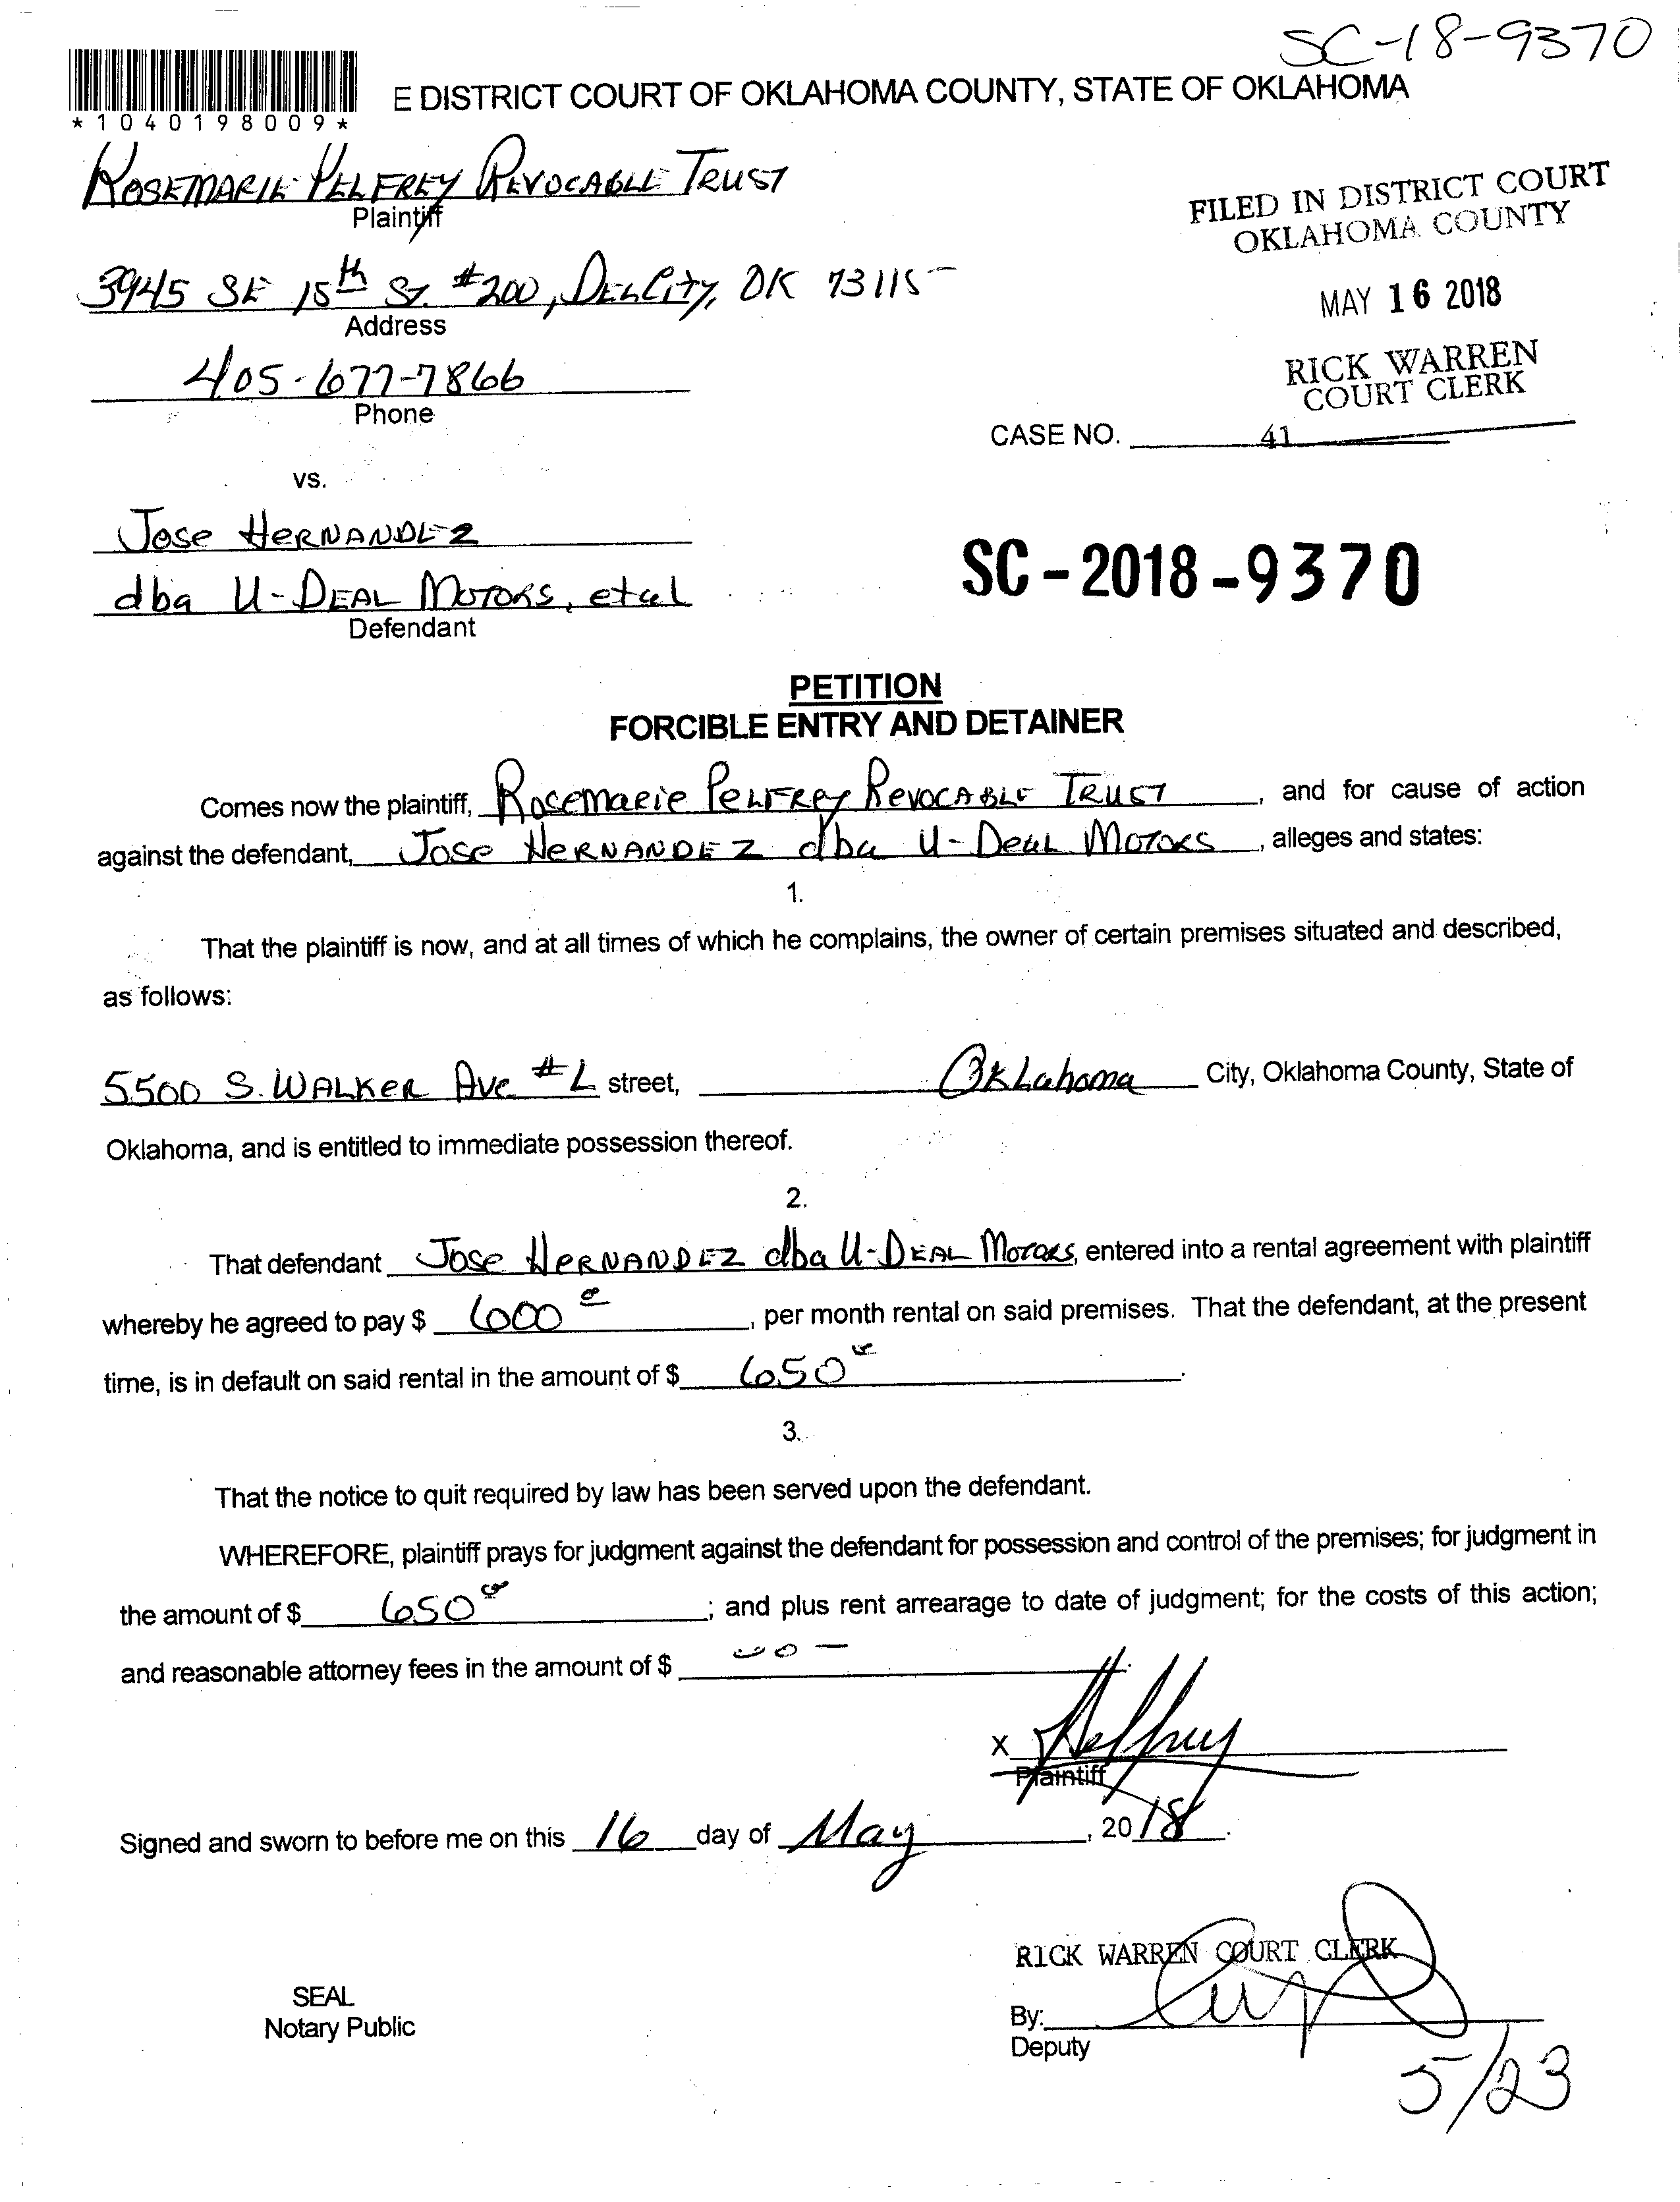 SC-18-9370
*1040198009*
E DISTRICT COURT OF OKLAHOMA COUNTY, STATE OF OKLAHOMA
ROSEMARIE PELFREY REVOCABLE TRUST
Plaintiff
FILED IN DISTRICT COURT
OKLAHOMA COUNTY
3945 SE 15th St. #200, Del City, OK 73115
Address
MAY 16 2018
405-677-7866
Phone
RICK WARREN
COURT CLERK
CASE NO. 41
vs.
Jose HERNANDEZ
dba U-DEAL MOTORS, etal
Defendant
SC-2018-9370
PETITION
FORCIBLE ENTRY AND DETAINER
Comes now the plaintiff, Rosemarie Pelfrey Revocable TRUST, and for cause of action
against the defendant, Jose HERNANDEZ dba U-Deal Motors, alleges and states:
1.
That the plaintiff is now, and at all times of which he complains, the owner of certain premises situated and described,
as follows:
5500 S. WALKER Ave #L street, Oklahoma City, Oklahoma County, State of
Oklahoma, and is entitled to immediate possession thereof.
2.
That defendant Jose HERNANDEZ dba U-DEAL Motors, entered into a rental agreement with plaintiff
whereby he agreed to pay $ 600, per month rental on said premises. That the defendant, at the present
time, is in default on said rental in the amount of $ 650.
3.
That the notice to quit required by law has been served upon the defendant.
WHEREFORE, plaintiff prays for judgment against the defendant for possession and control of the premises; for judgment in
the amount of $ 650; and plus rent arrearage to date of judgment; for the costs of this action;
and reasonable attorney fees in the amount of $
X Pelfrey
Plaintiff
Signed and sworn to before me on this 16 day of May, 2018.
RICK WARREN COURT CLERK
SEAL
Notary Public
By:
Deputy
5/23